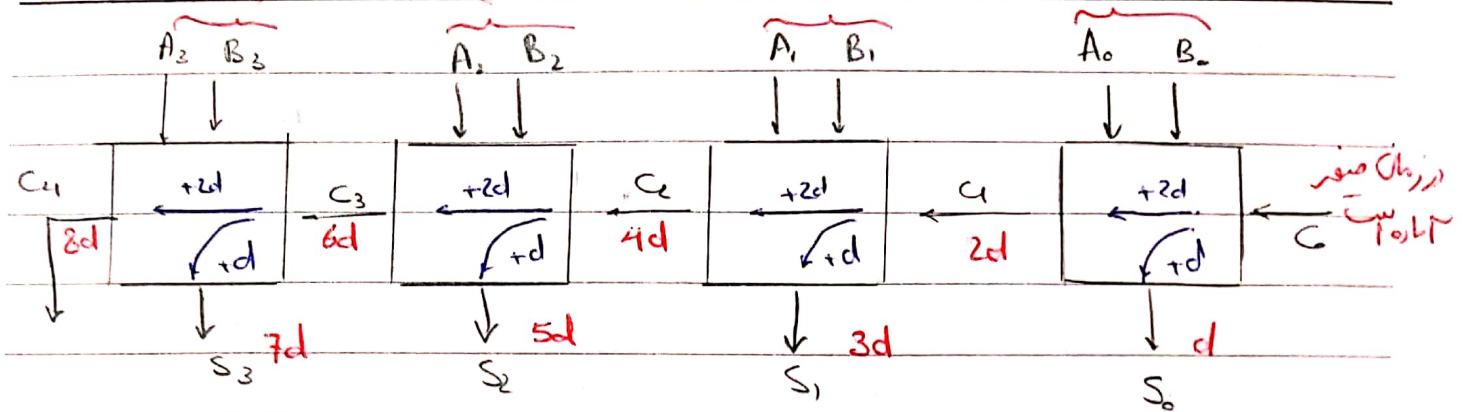 A3 B3 A2 B2 A1 B1 A0 B0
C4 +2d C3 +2d C2 +2d C1 +2d در زمان صفر
8d +d 6d +d 4d +d 2d +d C0 آماده است
S3 7d S2 5d S1 3d S0 d